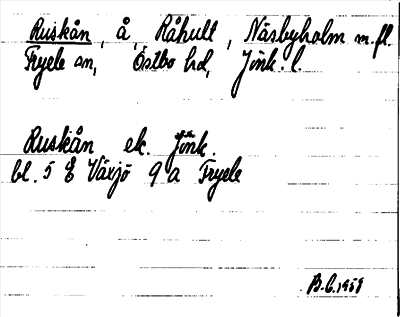 Ruskån, å, Råhult, Näsbyholm m.fl.
Fryele sn, Östbo hd, Jönk. l.
Ruskån ek. Jönk.
bl. 5 E Växjö 9 a Fryele
B.C. 1959